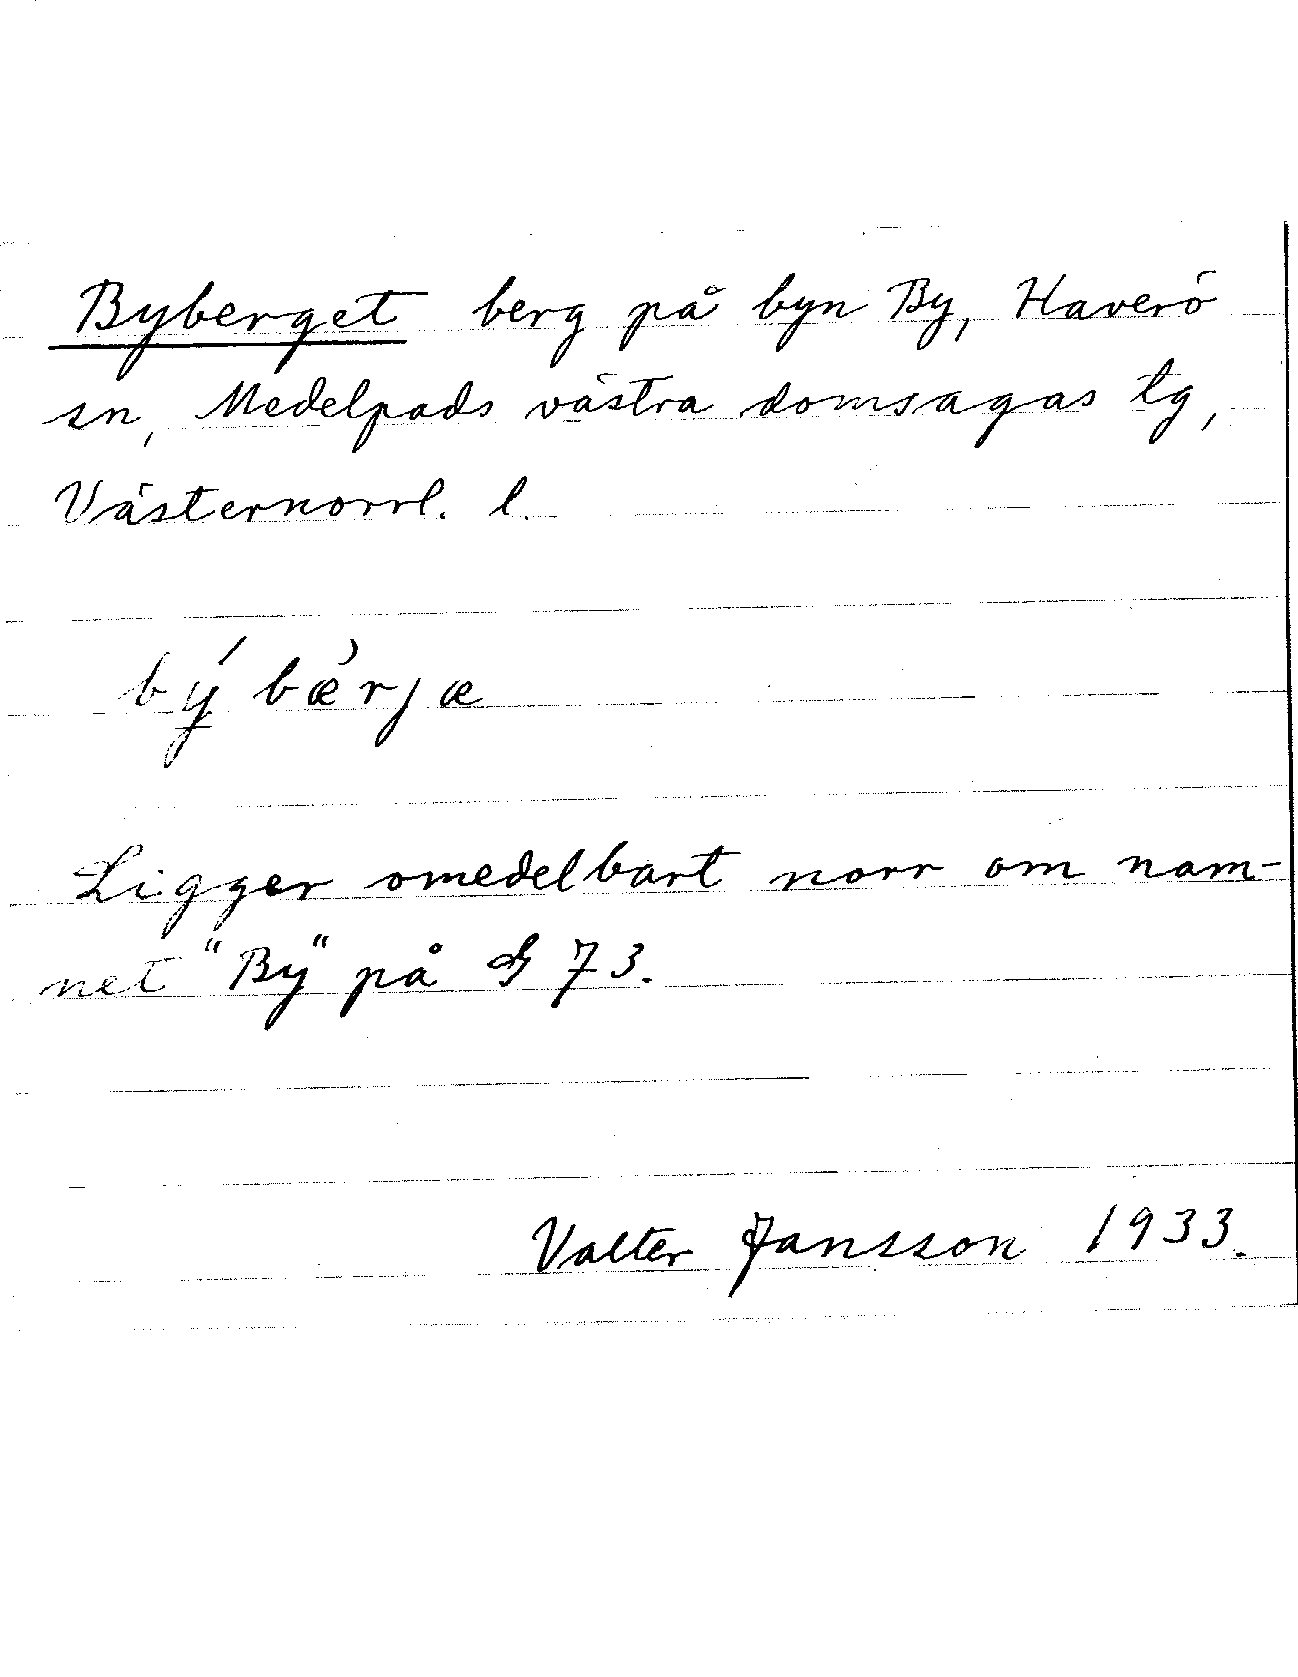 Byberget berg på byn By, Haverö
sn, Medelpads västra domsagas tg,
Västernorrl. l.
bý bæ̀rjæ
Ligger omedelbart norr om nam-
net "By" på G 73.
Valter Jansson 1933.